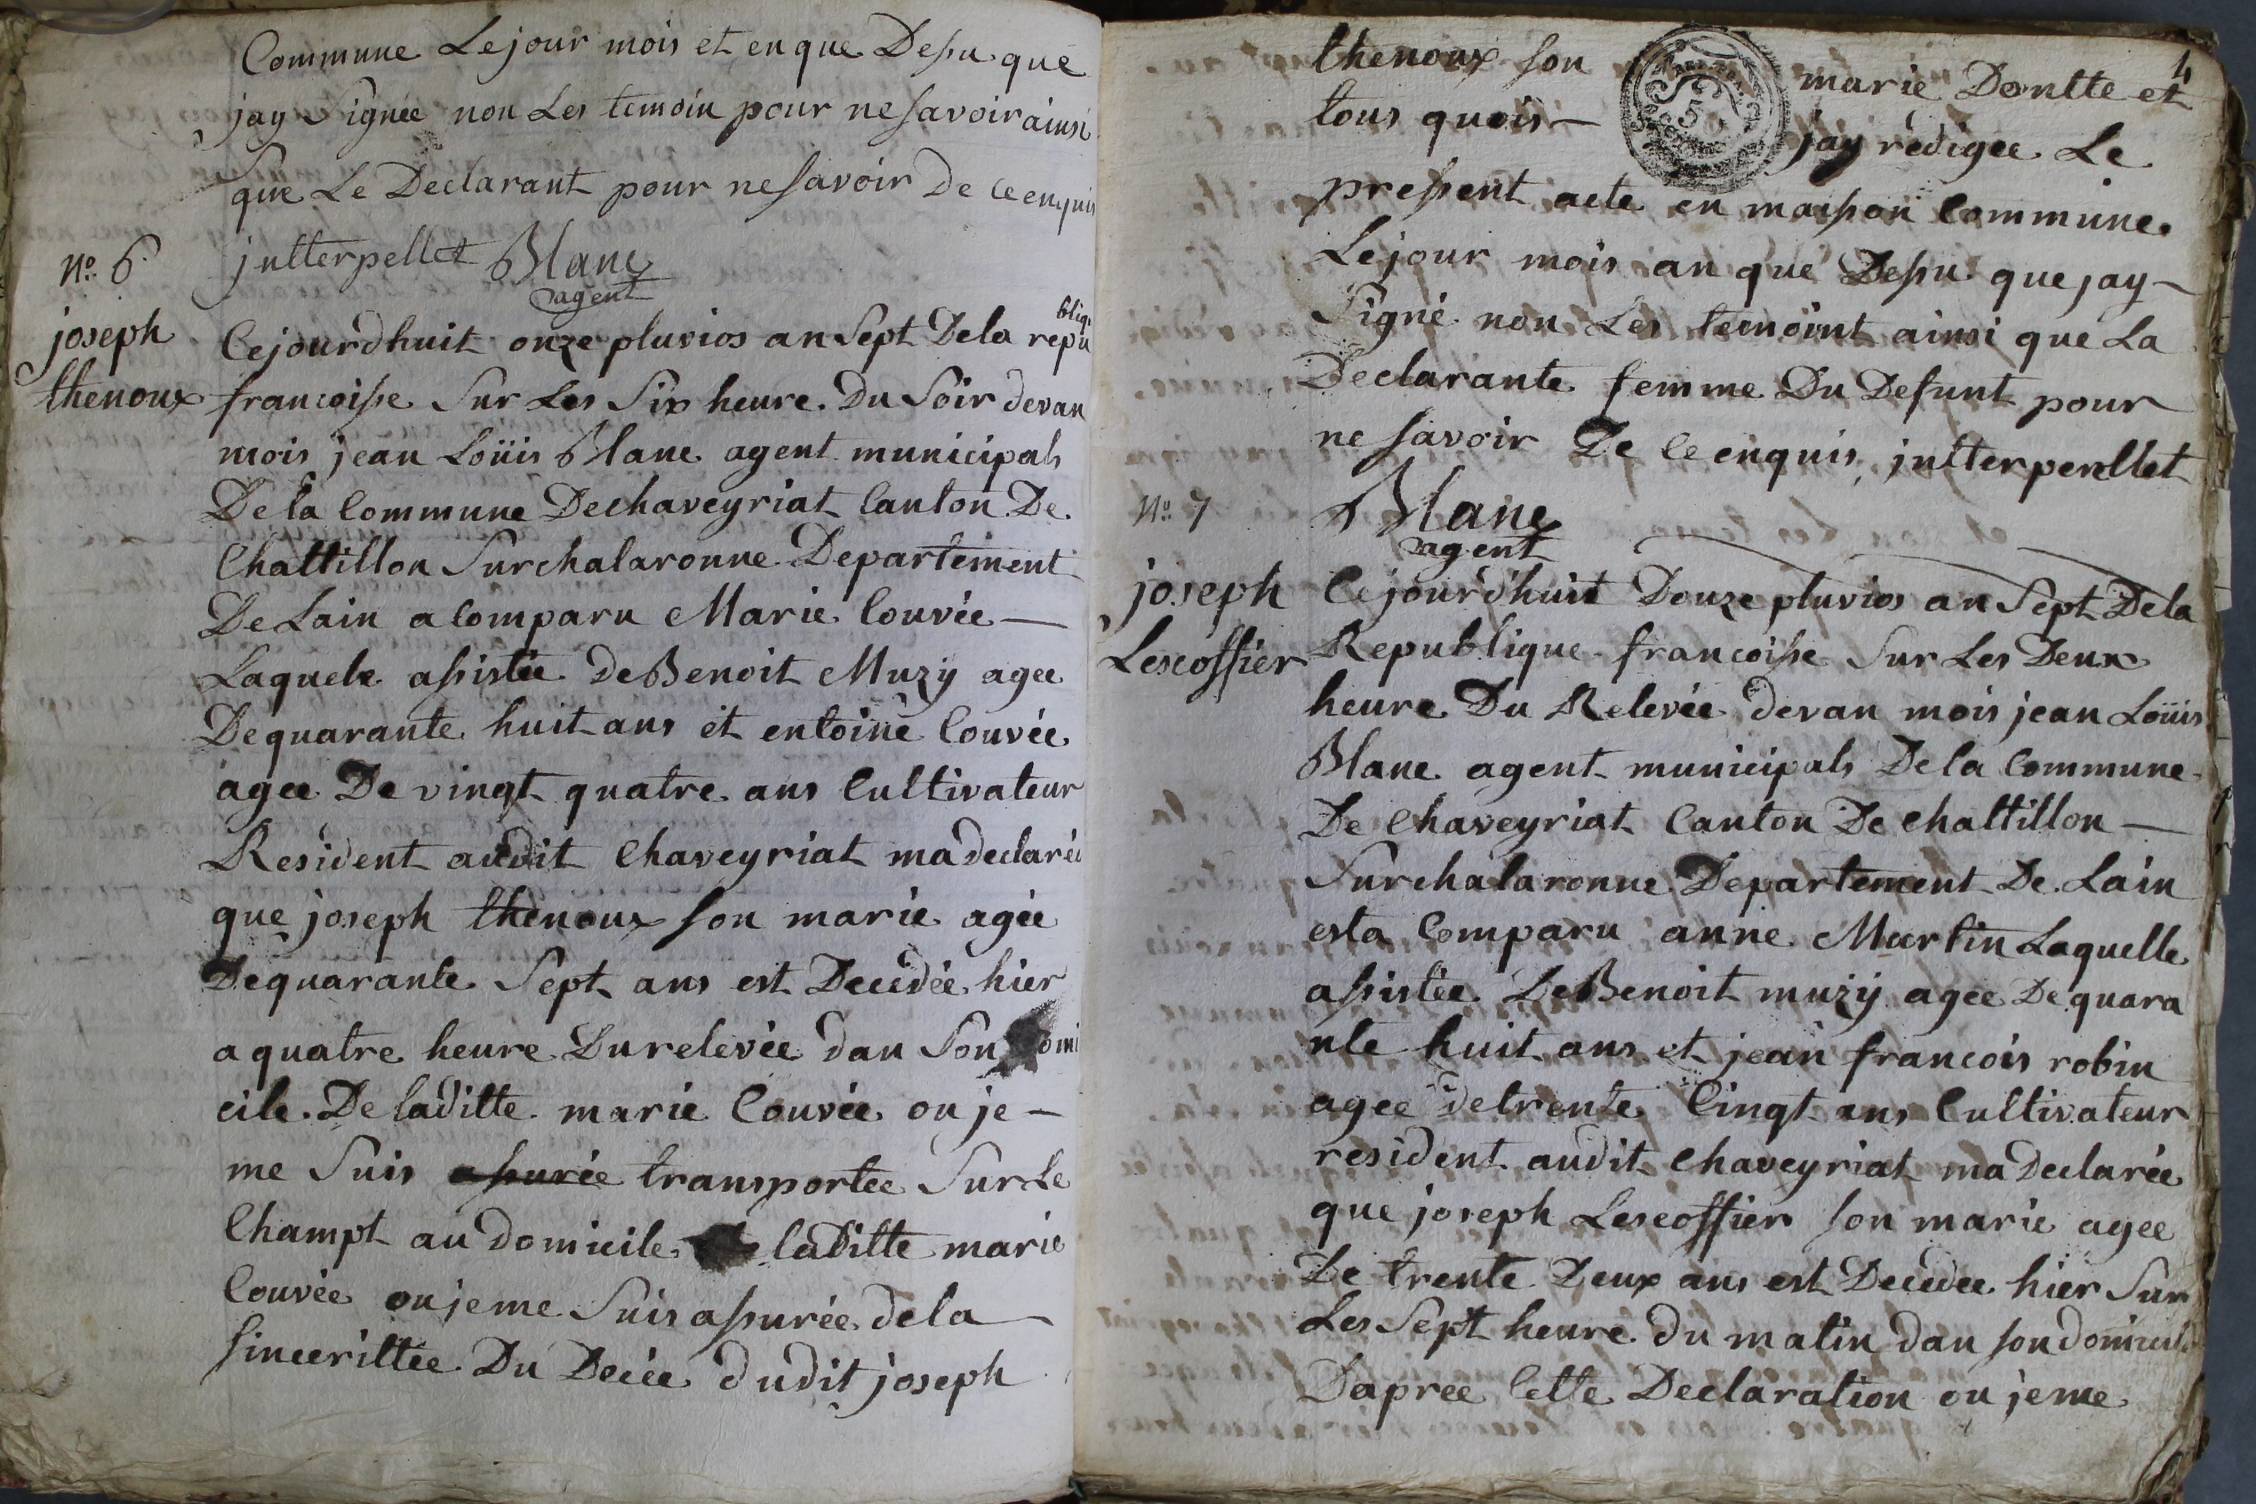 Commune Lejour mois et en que Dessu que
jay Signée non Les temoin pour ne savoir ainsi
que Le Declarant pour ne savoir De ce enquis
jntterpellet Blanc
agent
No. 6
joseph
thenoux
Cejourdhuit onze pluvios an Sept Dela repu
bliq.
francoisse Sur Les Six heure Du Soir devan
mois jean Loüis Blanc agent municipals
De la Commune Dechaveyriat Canton De
Chattillon Surchalaronne Departement
De Lain a Comparu Marie Couvée —
Laquele assistée de Benoit Muzÿ agee
De quarante huit ans et entoine Couvée
agee De vingt quatre ans Cultivateur
Resident audit Chaveyriat ma declarée
que joseph thenoux son marie agée
De quarante Sept ans est Decedée hier
a quatre heure Du relevée dan Son domi
cile De laditte marie Couvée ou je —
me Suis assurée transportee Sur Le
Champt au domicile de laditte marie
Couvée ou je me Suis assurée de la —
sincerittee Du Decée dudit joseph
4
thenoux son marie Dentte et
tous quois — jay rédigee Le
pressent acte en maison Commune
Lejour mois an que Dessu que jay —
Signé non Les temoint ainsi que La
Declarante femme Du Defunt pour
ne savoir De Ce enquis, jntterperellet
Blanc
agent
No. 7
joseph
Lescoffier
Cejourd'huit Douze pluvios an Sept Dela
Republique francoisse Sur Les Deux
heure Du Relevée devan mois jean Loüis
Blanc agent municipals De la Commune
De Chaveyriat Canton De Chattillon —
Surchalaronne Departement De Lain
esta Comparu anne Martin Laquelle
assistée De Benoit muzÿ agee De quara
nte huit ans et jean francois robin
agee de trente Cinqt ans Cultivateur
resident audit Chaveyriat ma Declarée
que joseph Lescoffier son marie agee
De trente Deux ans est Decedee hier Sur
Les Sept heure du matin dan son domicil
Dapree Cette Declaration ou je me